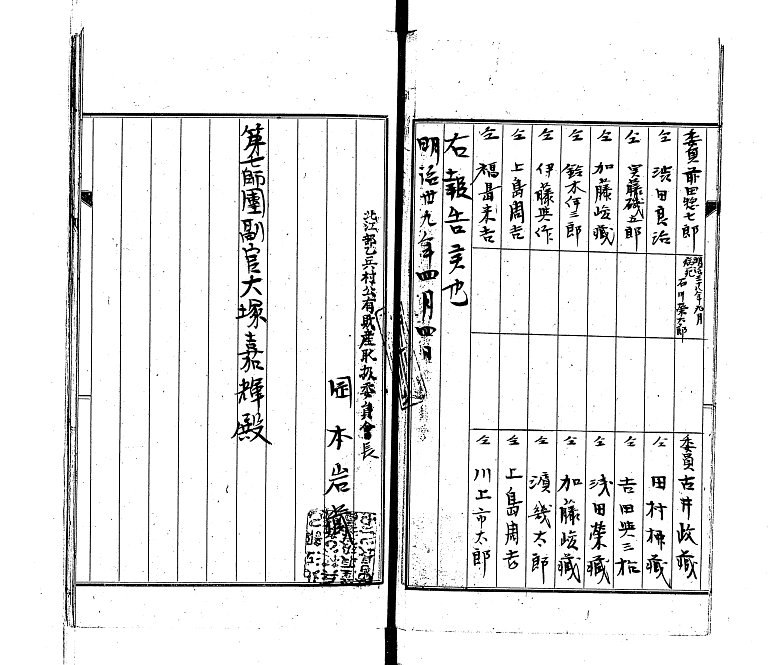 委員 前田惣七郎
仝 渋田良治
仝 実藤磯五郎
仝 加藤峻蔵
仝 鈴木伊三郎
仝 伊藤英作
仝 上島周吉
仝 福昌末吉
明治三十八年九月
病死 石川榮太郎
委員 古井政蔵
仝 田村梯蔵
仝 吉田与三松
仝 浅田榮蔵
仝 加藤峻蔵
仝 濱幾太郎
仝 上島周吉
仝 川上市太郎
右報告候也
明治卅九年四月四日
北江部乙兵村公有財産取扱委員會長
岡本岩蔵
第七師團副官大塚嘉輝殿